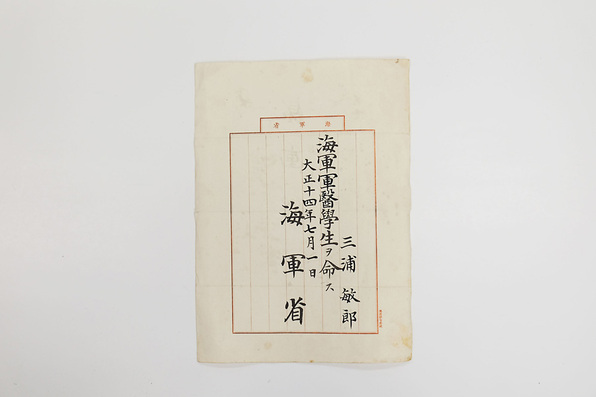 海軍省
三浦敏郎
海軍軍醫學生ヲ命ス
大正十四年七月一日
海軍省